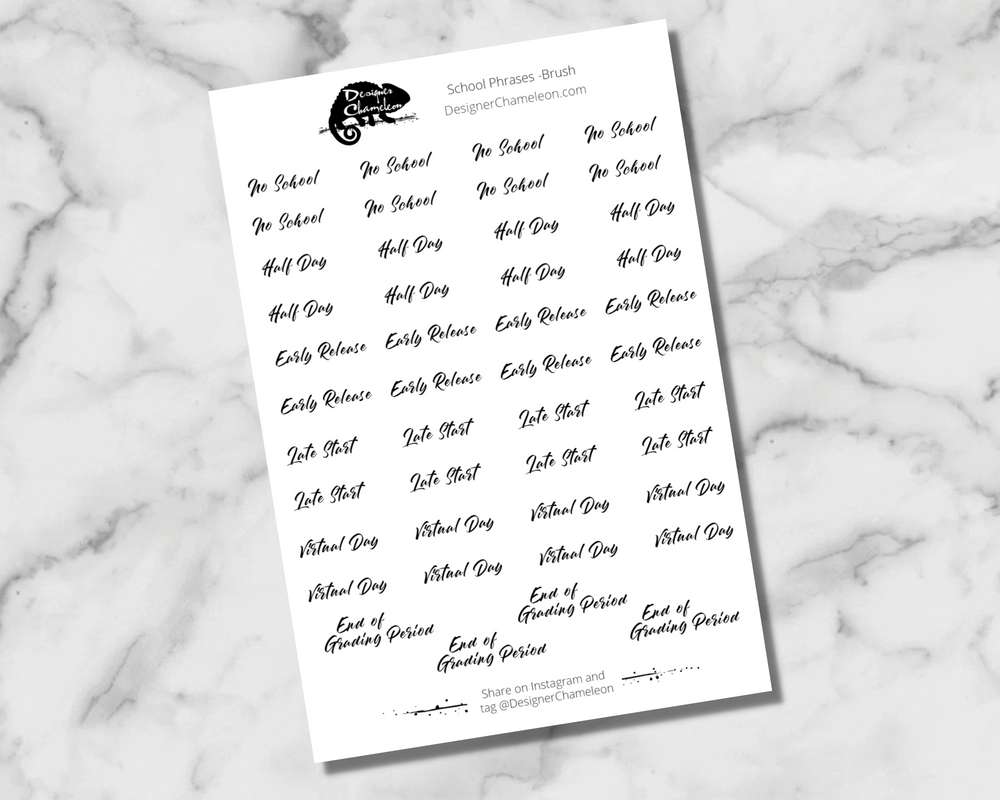 Designer
Chameleon
School Phrases -Brush
DesignerChameleon.com
No School No School No School No School
No School No School No School No School
Half Day Half Day Half Day Half Day
Half Day Half Day Half Day Half Day
Early Release Early Release Early Release Early Release
Early Release Early Release Early Release Early Release
Late Start Late Start Late Start Late Start
Late Start Late Start Late Start Late Start
Virtual Day Virtual Day Virtual Day Virtual Day
Virtual Day Virtual Day Virtual Day Virtual Day
End of
Grading Period
End of
Grading Period
End of
Grading Period
End of
Grading Period
Share on Instagram and
tag @DesignerChameleon